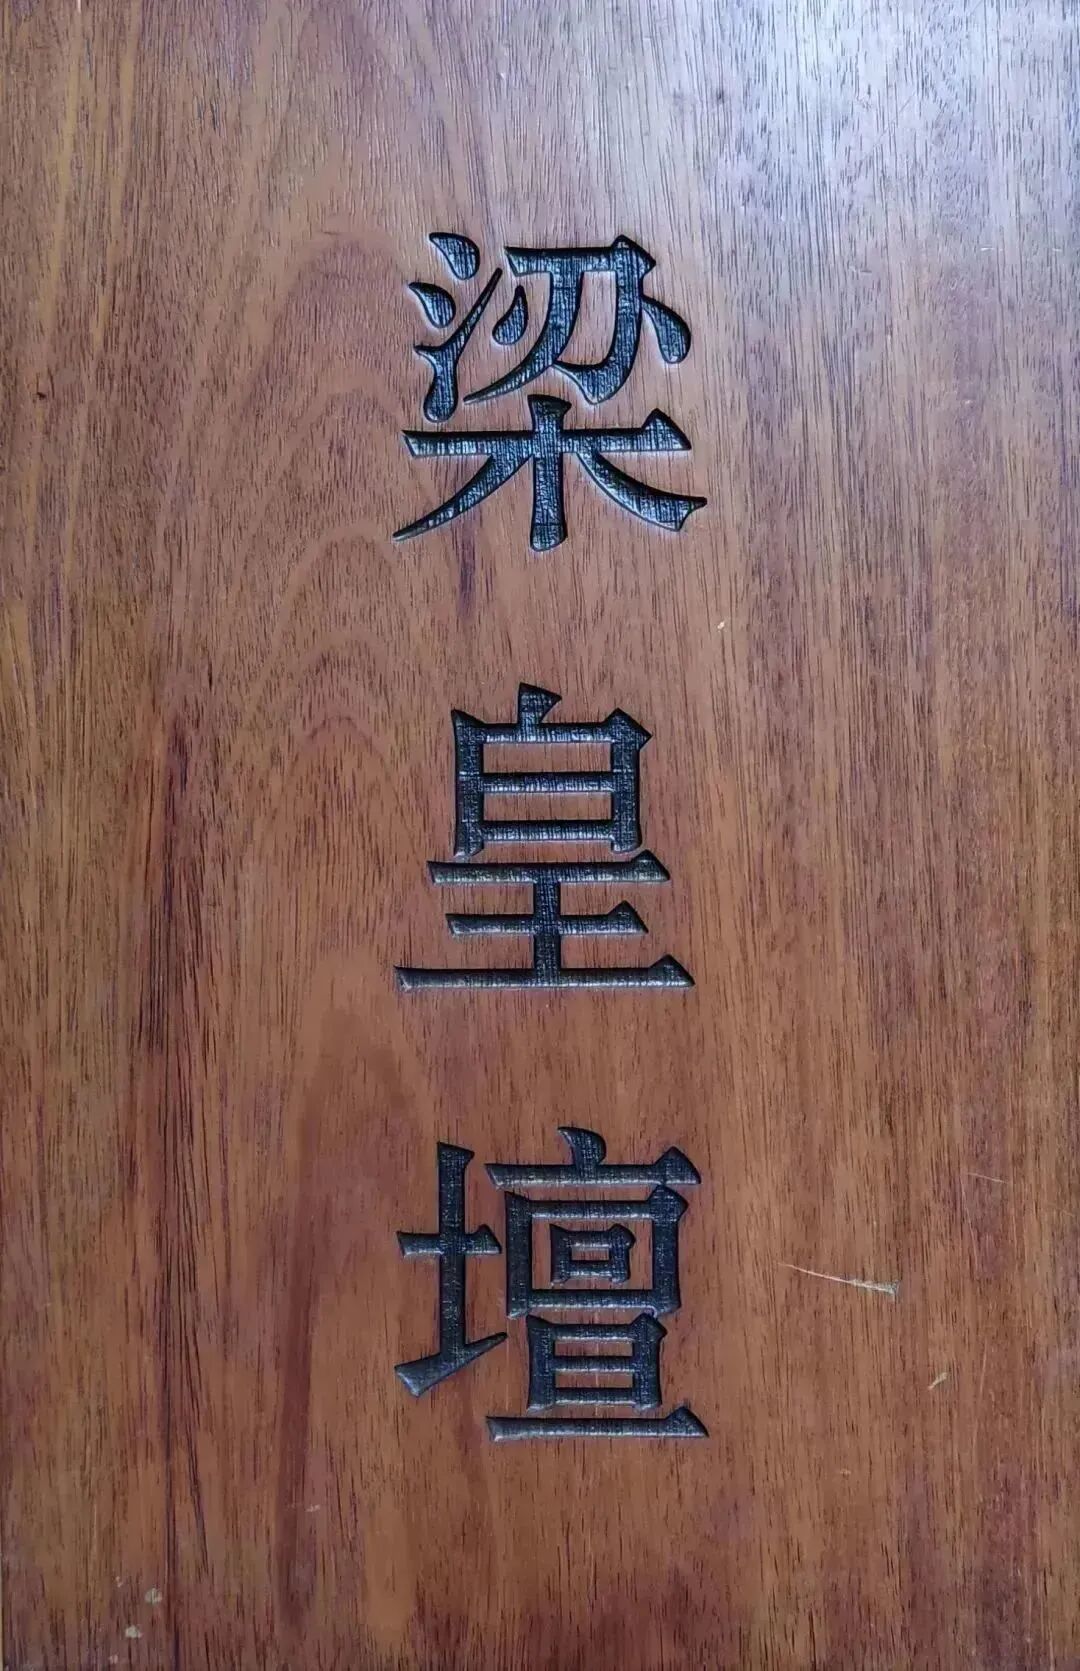 梁皇壇